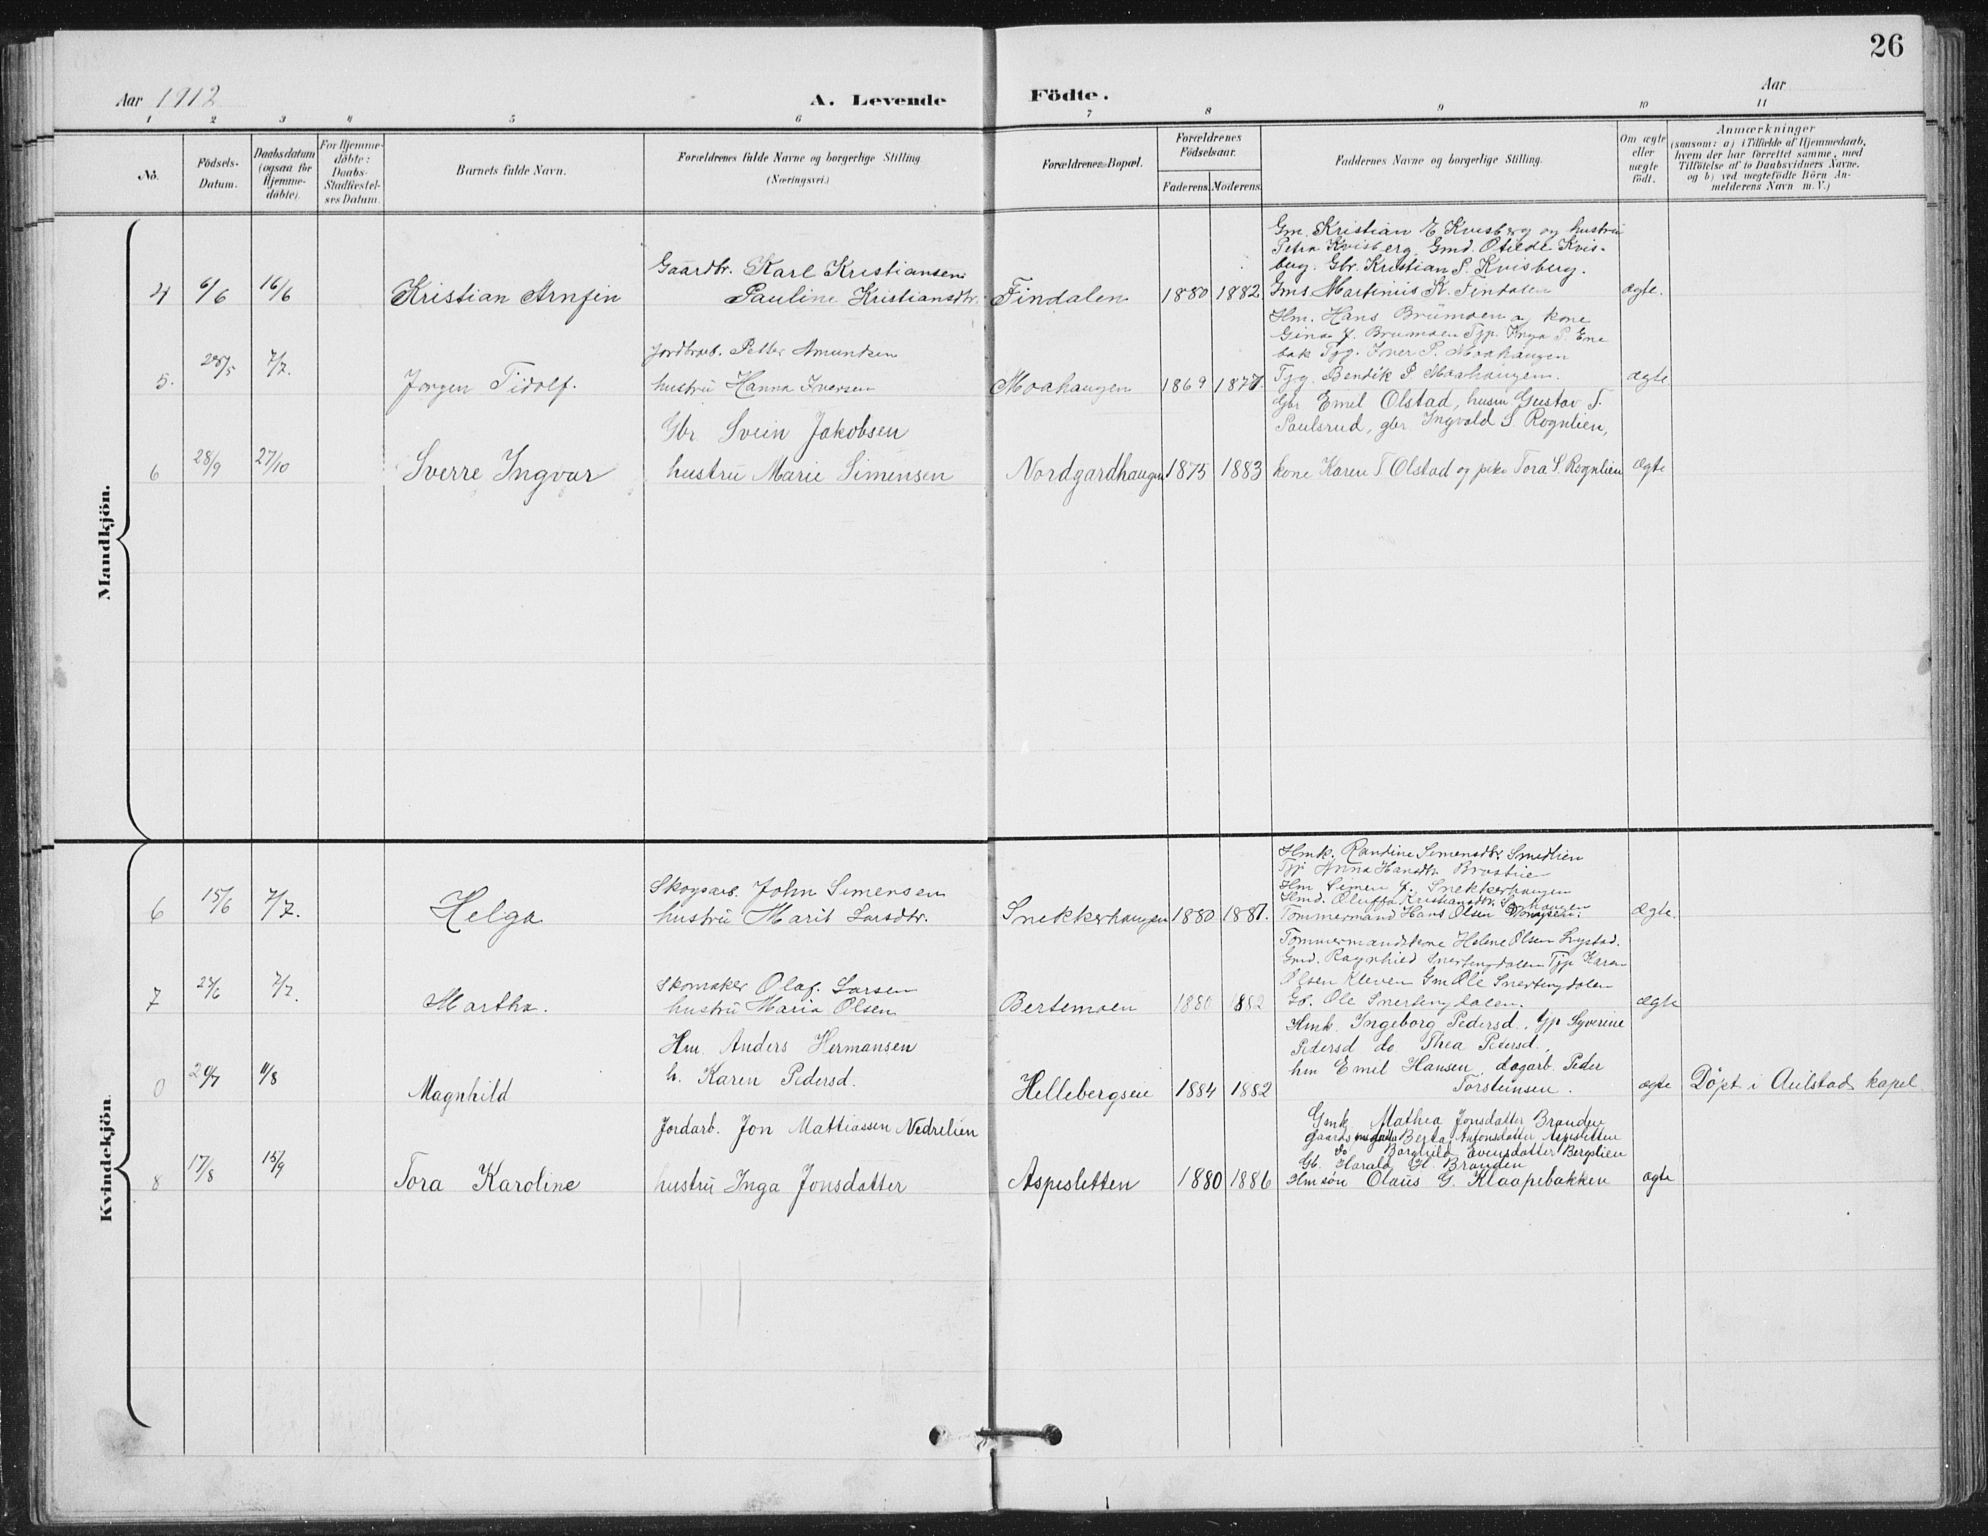 26
Aar 1912
A. Levende Födte.
Aar
1 2 3 4 5 6 7 8 9 10 11
No.
Födsels-Datum.
Daabsdatum (ogsaa for Hjemmedöbte).
For Hjemmedöbte: Daabs-Stadfæstelses Datum.
Barnets fulde Navn.
Forældrenes fulde Navne og borgerlige Stilling (Næringsvei.)
Forældrenes Bopæl.
Forældrenes Födselsaar.
Faderens. Moderens.
Faddernes Navne og borgerlige Stilling.
Om ægte eller uægte födt.
Anmærkninger
(saasom: a) i Tilfælde af Hjemmedaab,
hvem der har forrettet samme, med
Tilföielse af to Daabsvidners Navne.
og b) ved uægtefödte Börn An-
melderens Navn m. V.)
Mandkjön.
4 6/6 16/6 Kristian Arnfin
Gaardbr. Karl Kristiansen
Pauline Kristiansdtr.
Findalen 1880 1882
Gm. Kristian E Kvisberg og hustru
Petra Kvisberg, Gmd. Otilde Kvis-
berg. Gbr. Kristian P. Kvisberg.
Gms Martinius K. Findalen
ægte.
5. 28/5 7/7. Jørgen Tidolf.
Jordbrarb. Petter Amundsen
hustru Hanna Iversen
Moahaugen 1869 1877.
Hm. Hans Brumoen og kone
Gina J. Brumoen Tjp. Inga P. Ene
bak Tjg. Iver P. Moahaugen
Tjg. Bendik P. Moahaugen.
ægte
6 28/9 27/10 Sverre Ingvar
Gbr Svein Jakobsen
hustru Marie Simensen
Nordgardhaugen 1875 1883
Gbr Emil Olstad, husm Gustav T.
Paulsrud, gbr Ingvald S. Rognlien,
kone Karen T Olstad og pike Tora S. Rognlien
ægte
Kvindekjön.
6 15/6 7/7. Helga
Skogsarb. John Simensen
hustru Marit Larsdtr.
Snekkerhaugen 1880 1881.
Hmk. Randine Simensdtr. Smedlien
Tjp Anna Hansdtr
Hm Simen J. Snekkerhaugen
Hmd. Oluffa Kristiansdtr.
Tømmermand Hans Olsen
Ægte.
7 7/7. Martha.
Skomaker Olaf Larsen
hustru Maria Olsen
Bertemoen 1880 1882
Tømmermandskone Helene Olsen Lystad.
Gmd. Ragnhild Snertingdalen Tjp Karen
Olsen Kleven Gm Ole Snertingdalen
Gb. Ole Snertingdalen.
ægte
0 11/8 Magnhild
Hm. Anders Hermansen
h. Karen Pedersd.
Hellebergseie 1884 1882
Hmk. Ingeborg Pedersd., tjp Syverine
Pedersd do Thea Pedersd.,
hm Emil Hansen, dagarb. Peder
Torsteinsen.
ægte Døpt i Aulstad kapel
8 17/8 15/9 Tora Karoline
Jordarb. Jon Mattiassen Nedrelien
hustru Inga Jonsdatter
Aspesletten 1880 1886
Gmk Mathea Jonsdatter Branden
Berta Antonsdatter Aspesletten
do Borghild Evensdatter Bergslien
Gb. Harald H. Branden
Hm søn Olaus G. Klaapebakken
ægte